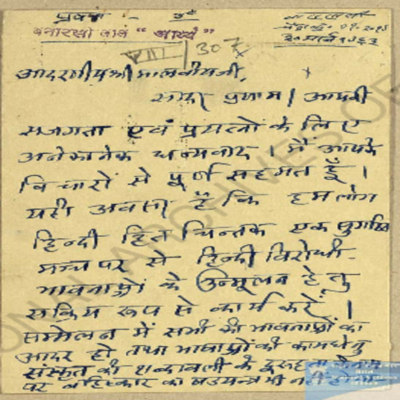 बनारसी लाल "आर्य"
VIII/307
आदरणीय श्री मालवीयजी,
सादर प्रणाम। आपकी
सजगता एवं प्रयत्नों के लिए
अनेकानेक धन्यवाद। मैं आपके
विचारों से पूर्ण सहमत हूँ।
यही अवसर है कि हम लोग
हिन्दी हित चिन्तक एक
मञ्च पर से हिन्दी विरोधी
भावनाओं के उन्मूलन हेतु
सक्रिय रूप से कार्य करें।
सम्मेलन में सभी की भावनाओं का
आदर हो तथा भाषाओं की कामधेनु
संस्कृत की शब्दावली के दुरूहता के नाम
पर बहिष्कार का षडयन्त्र भी